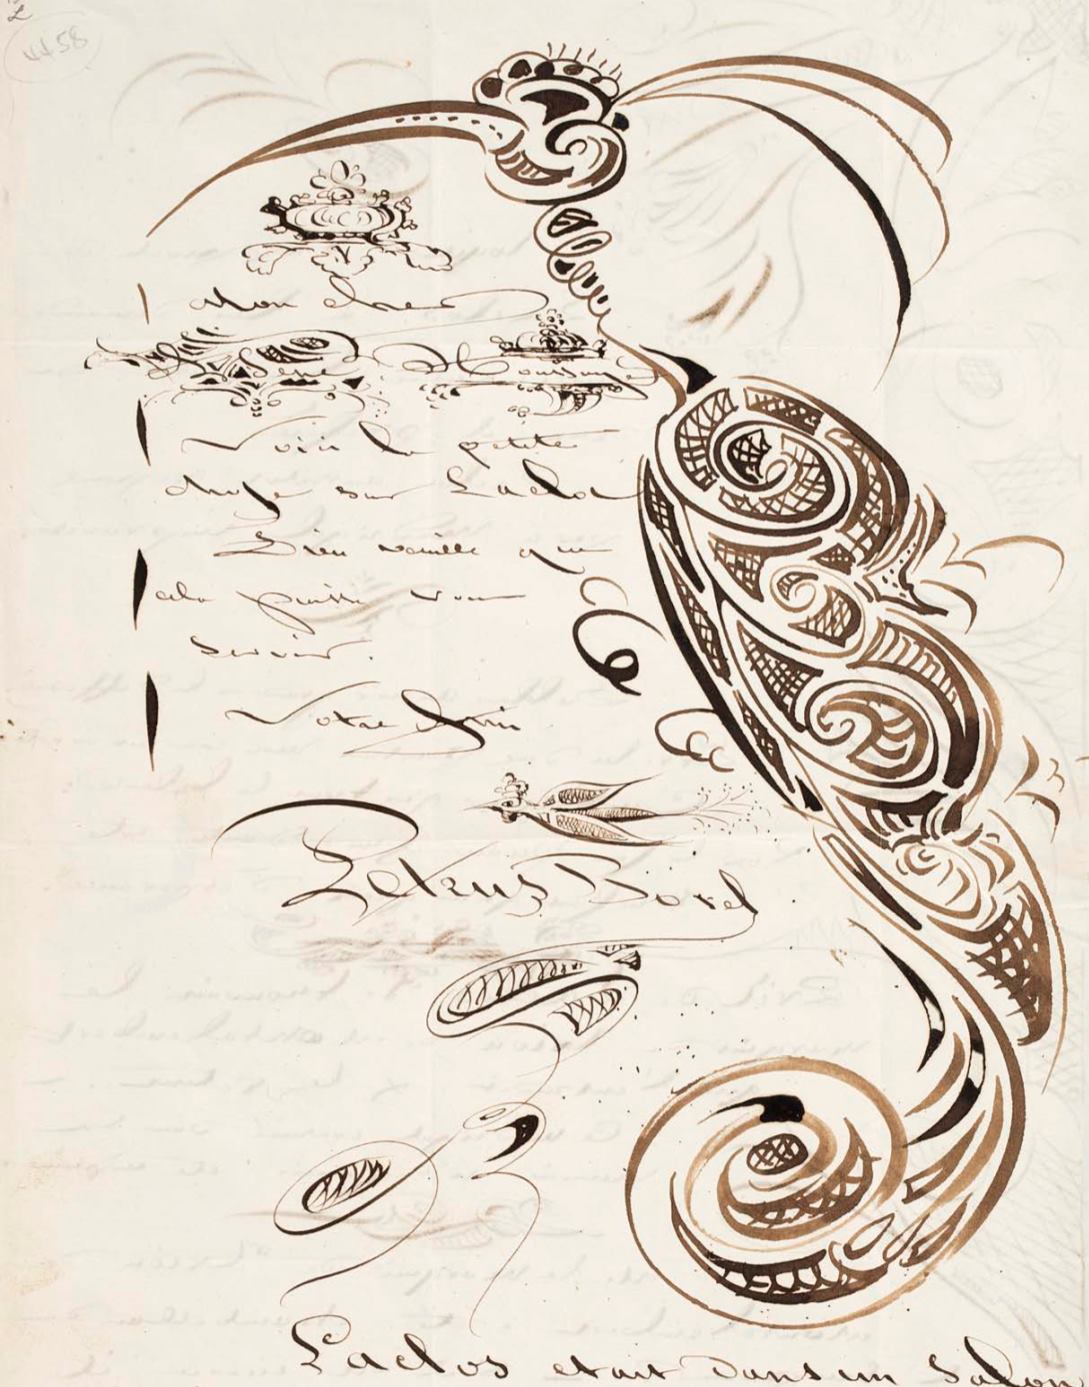 Mon cher
Arsène Houssaye
Voici la petite
chose sur Laclos
Dieu veuille que
cela puisse vous
servir.
Votre ami
Petrus Borel
Laclos etait dans un Salon